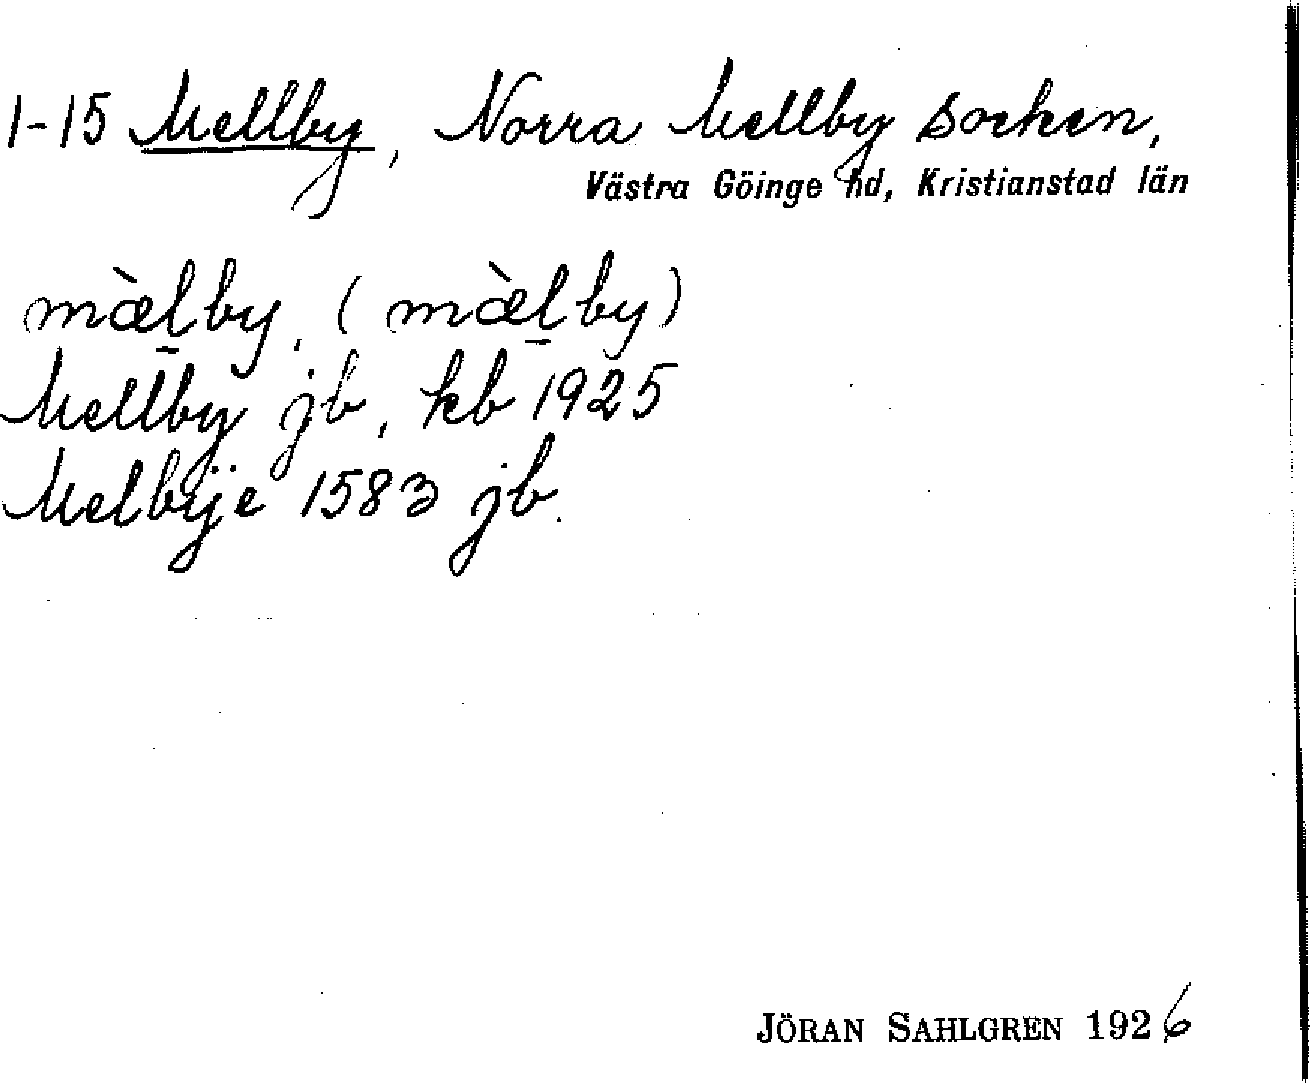 1-15 Mellby, Norra Mellby socken,
Västra Göinge hd, Kristianstad län
mæ̀l̠by, (mæ̀l̠by)
Mellby jb, kb 1925
Melbÿe 1583 jb.
JÖRAN SAHLGREN 1926